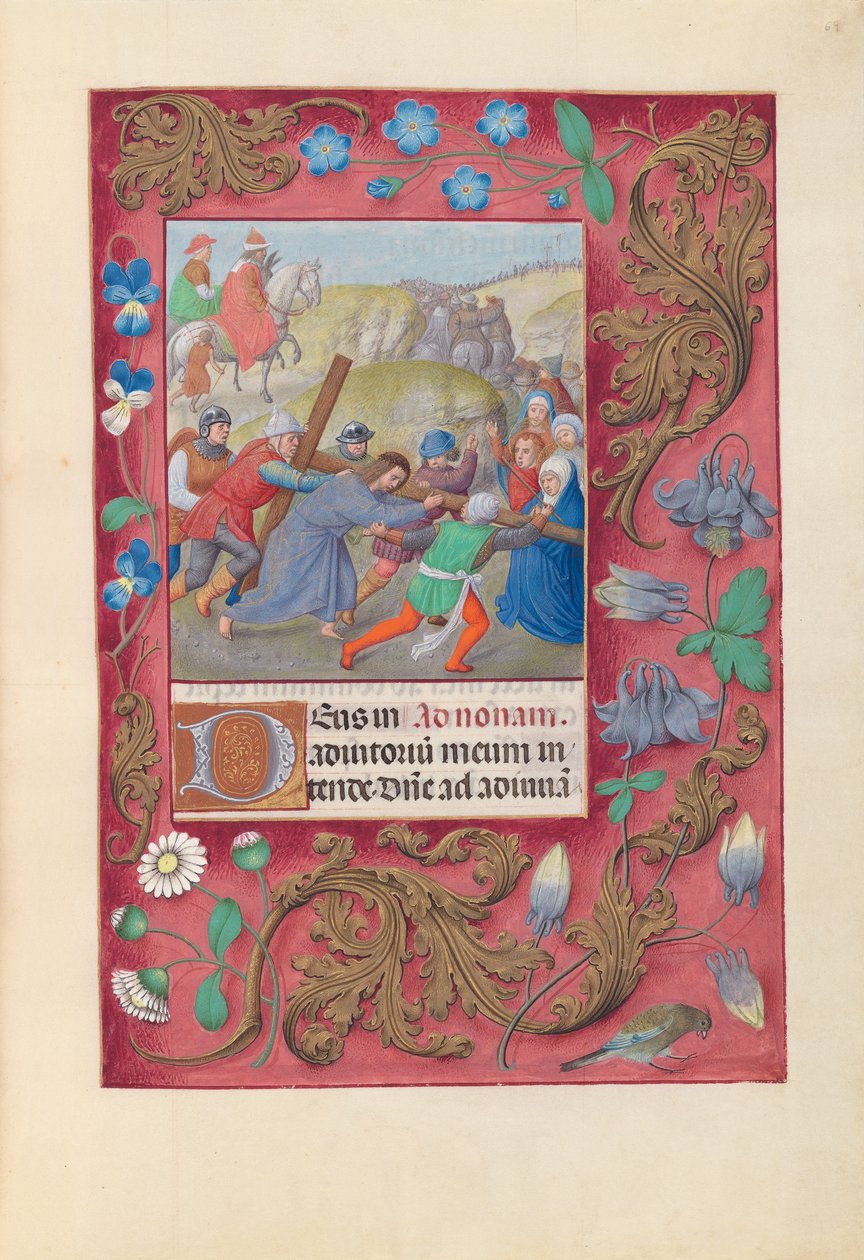 69
DEus in Ad nonam.
adiutoriū meum in/
tende. Dn̄e ad adiuuā